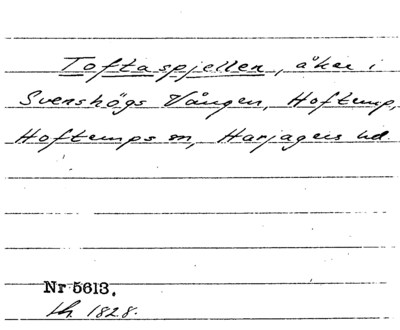 Toftaspjellen, åker i
Svenshögs Vången, Hoftemp,
Hoftemps sn, Harjagers hd.
Nr 5613.
th. 1828.